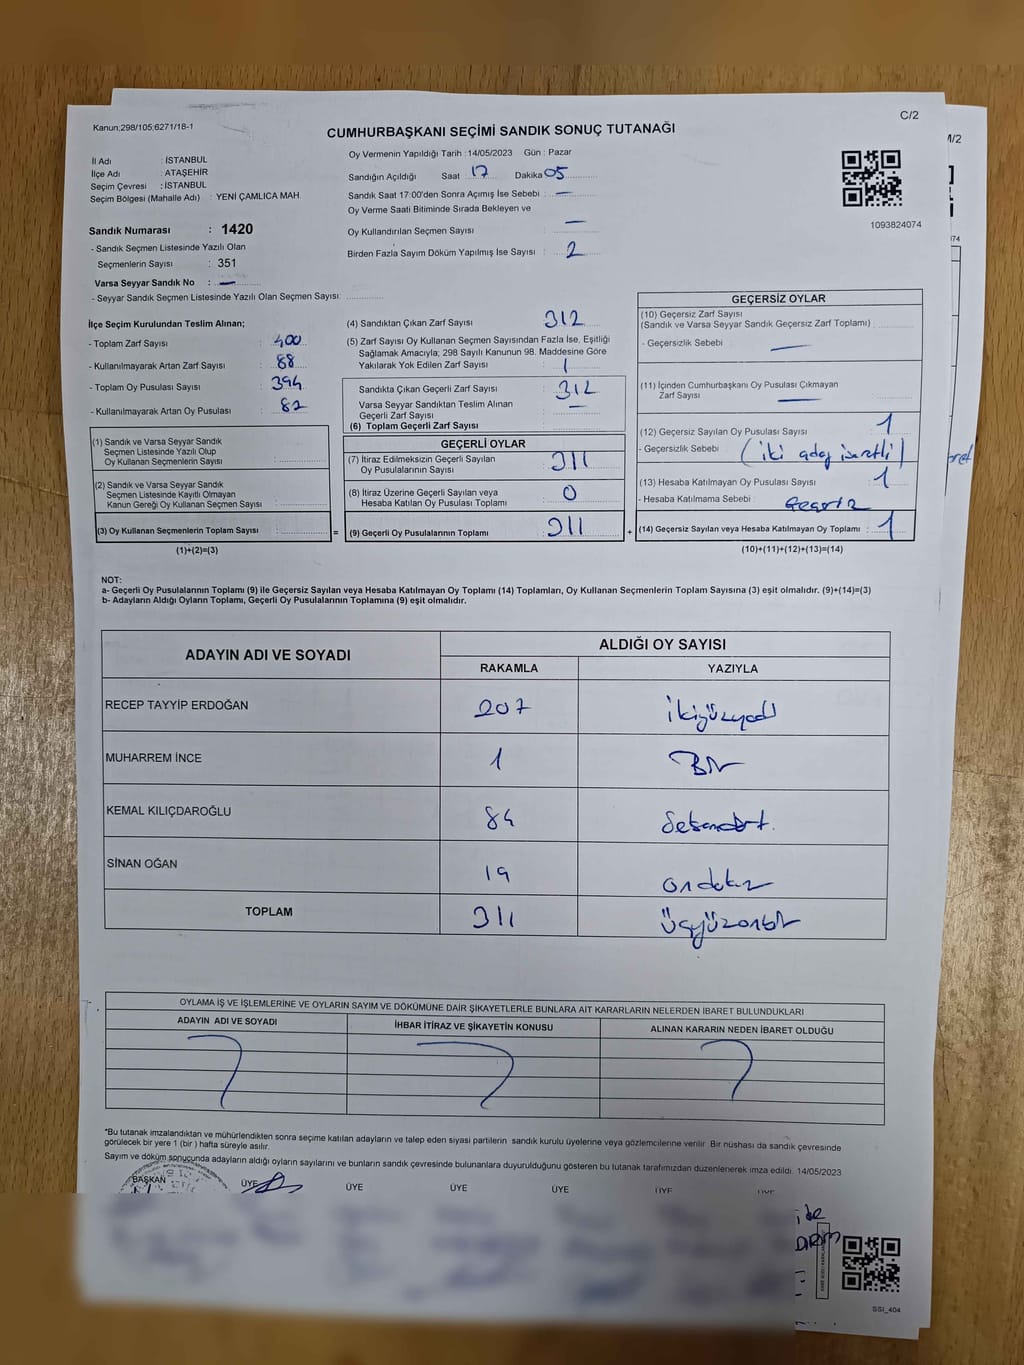 C/2
Kanun;298/105;6271/18-1
CUMHURBAŞKANI SEÇİMİ SANDIK SONUÇ TUTANAĞI
İl Adı : İSTANBUL
İlçe Adı : ATAŞEHİR
Seçim Çevresi : İSTANBUL
Seçim Bölgesi (Mahalle Adı) : YENİ ÇAMLICA MAH
Sandık Numarası : 1420
- Sandık Seçmen Listesinde Yazılı Olan
Seçmenlerin Sayısı : 351
Varsa Seyyar Sandık No : —
- Seyyar Sandık Seçmen Listesinde Yazılı Olan Seçmen Sayısı:
Oy Vermenin Yapıldığı Tarih : 14/05/2023 Gün : Pazar
Sandığın Açıldığı Saat 17 Dakika 05
Sandık Saat 17:00'den Sonra Açımış İse Sebebi : —
Oy Verme Saati Bitiminde Sırada Bekleyen ve
Oy Kullandırılan Seçmen Sayısı : —
Birden Fazla Sayım Döküm Yapılmış İse Sayısı : 2
1093824074
İlçe Seçim Kurulundan Teslim Alınan;
- Toplam Zarf Sayısı : 400
- Kullanılmayarak Artan Zarf Sayısı : 88
- Toplam Oy Pusulası Sayısı : 394
- Kullanılmayarak Artan Oy Pusulası : 82
(1) Sandık ve Varsa Seyyar Sandık
Seçmen Listesinde Yazılı Olup
Oy Kullanan Seçmenlerin Sayısı :
(2) Sandık ve Varsa Seyyar Sandık
Seçmen Listesinde Kayıtlı Olmayan
Kanun Gereği Oy Kullanan Seçmen Sayısı :
(3) Oy Kullanan Seçmenlerin Toplam Sayısı :
(1)+(2)=(3)
(4) Sandıktan Çıkan Zarf Sayısı : 312
(5) Zarf Sayısı Oy Kullanan Seçmen Sayısından Fazla İse, Eşitliği
Sağlamak Amacıyla; 298 Sayılı Kanunun 98. Maddesine Göre
Yakılarak Yok Edilen Zarf Sayısı : 1
Sandıkta Çıkan Geçerli Zarf Sayısı : 312
Varsa Seyyar Sandıktan Teslim Alınan
Geçerli Zarf Sayısı : —
(6) Toplam Geçerli Zarf Sayısı :
GEÇERLİ OYLAR
(7) İtiraz Edilmeksizin Geçerli Sayılan
Oy Pusulalarının Sayısı : 311
(8) İtiraz Üzerine Geçerli Sayılan veya
Hesaba Katılan Oy Pusulaları Toplamı : 0
= (9) Geçerli Oy Pusulalarının Toplamı : 311 +
GEÇERSİZ OYLAR
(10) Geçersiz Zarf Sayısı
(Sandık ve Varsa Seyyar Sandık Geçersiz Zarf Toplamı) :
- Geçersizlik Sebebi : —
(11) İçinden Cumhurbaşkanı Oy Pusulası Çıkmayan
Zarf Sayısı : —
(12) Geçersiz Sayılan Oy Pusulası Sayısı : 1
- Geçersizlik Sebebi : (iki aday işaretli)
(13) Hesaba Katılmayan Oy Pusulası Sayısı : 1
- Hesaba Katılmama Sebebi :
(14) Geçersiz Sayılan veya Hesaba Katılmayan Oy Toplamı : 1
(10)+(11)+(12)+(13)=(14)
NOT:
a- Geçerli Oy Pusulalarının Toplamı (9) ile Geçersiz Sayılan veya Hesaba Katılmayan Oy Toplamı (14) Toplamları, Oy Kullanan Seçmenlerin Toplam Sayısına (3) eşit olmalıdır. (9)+(14)=(3)
b- Adayların Aldığı Oyların Toplamı, Geçerli Oy Pusulalarının Toplamına (9) eşit olmalıdır.
ADAYIN ADI VE SOYADI ALDIĞI OY SAYISI
RAKAMLA YAZIYLA
RECEP TAYYİP ERDOĞAN 207 ikiyüzyedi
MUHARREM İNCE 1 Bir
KEMAL KILIÇDAROĞLU 84 Seksendört.
SİNAN OĞAN 19 ondokuz
TOPLAM 311 üçyüzonbir
OYLAMA İŞ VE İŞLEMLERİNE VE OYLARIN SAYIM VE DÖKÜMÜNE DAİR ŞİKAYETLERLE BUNLARA AİT KARARLARIN NELERDEN İBARET BULUNDUKLARI
ADAYIN ADI VE SOYADI İHBAR İTİRAZ VE ŞİKAYETİN KONUSU ALINAN KARARIN NEDEN İBARET OLDUĞU
"Bu tutanak imzalandıktan ve mühürlendikten sonra seçime katılan adayların ve talep eden siyasi partilerin sandık kurulu üyelerine veya gözlemcilerine verilir. Bir nüshası da sandık çevresinde
görülecek bir yere 1 (bir) hafta süreyle asılır.
Sayım ve döküm sonucunda adayların aldığı oyların sayılarını ve bunların sandık çevresinde bulunanlara duyurulduğunu gösteren bu tutanak tarafımızdan düzenlenerek imza edildi. 14/05/2023
BAŞKAN ÜYE ÜYE ÜYE ÜYE ÜYE ÜYE
SSI_404